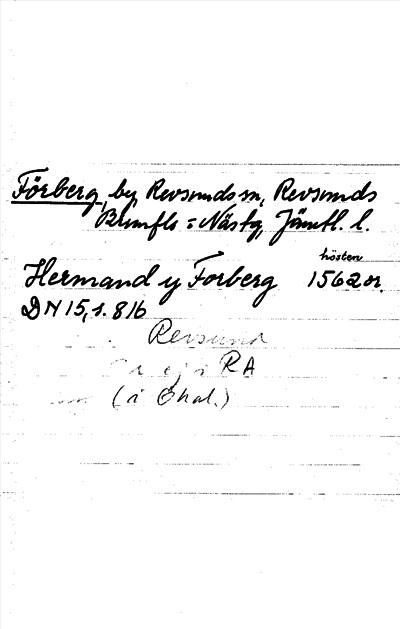 Förberg, by, Revsunds sn, Revsunds
Brunflo = Näs tg, Jämtl. l.
hösten
Hermand y Forberg 1562 or.
DN 15, s. 816
Revsund
ej i RA
(i Ohal.)